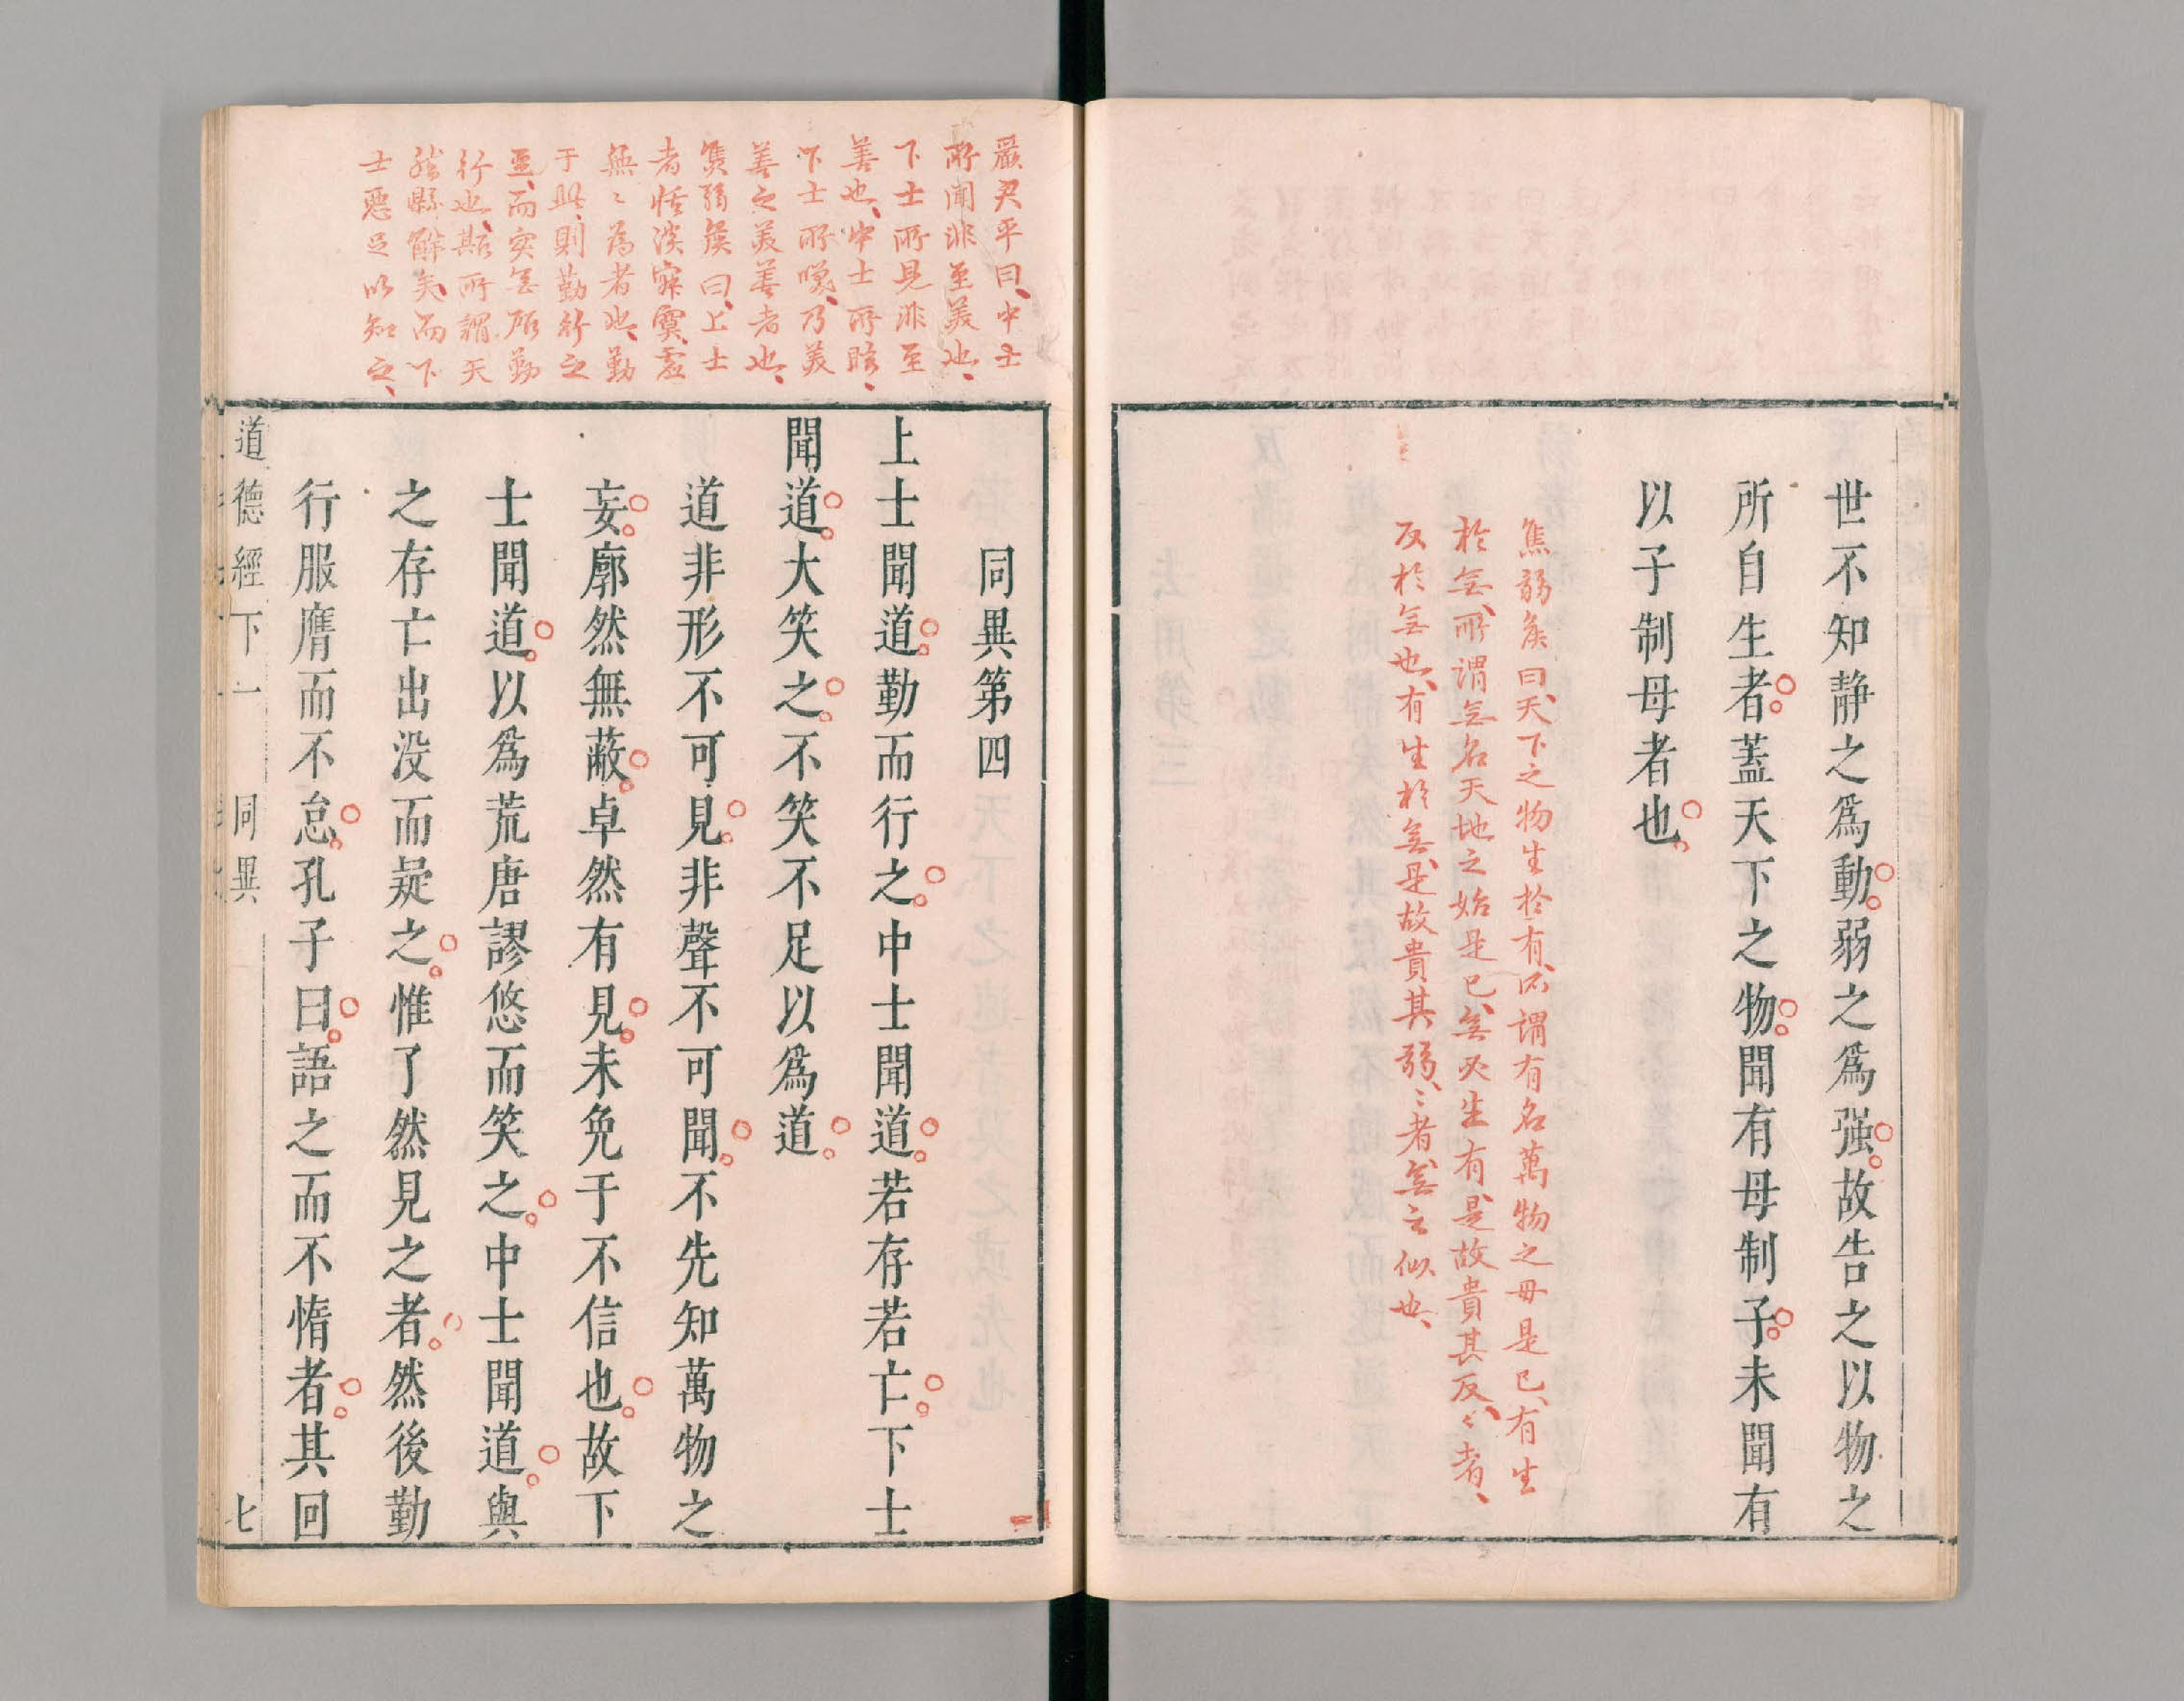 世不知静之爲動弱之爲强故告之以物之
所自生者蓋天下之物聞有母制子未聞有
以子制母者也
焦弱矦曰天下之物生於有所謂有名萬物之母是已有生
於無所謂無名天地之始是已無必生有是故貴其反〻者
反於無也有生於無是故貴其弱〻者無之似也
嚴君平曰中士
所聞非至美也
下士所見非至
善也中士所眩
下士所嘆乃美
善之美善者也
焦弱矦曰上士
者恬淡寂寞虛
無〻爲者也勤
于此則勤行之
亟而实無所勤
行也斯所謂天
然縣解矣而下
士惡足以知之
同異第四
上士聞道勤而行之中士聞道若存若亡下士
聞道大笑之不笑不足以爲道
道非形不可見非聲不可聞不先知萬物之
妄廓然無蔽卓然有見未免于不信也故下
士聞道以爲荒唐謬悠而笑之中士聞道與
之存亡出没而疑之惟了然見之者然後勤
行服膺而不怠孔子曰語之而不惰者其回
道德經下 一 同異 七